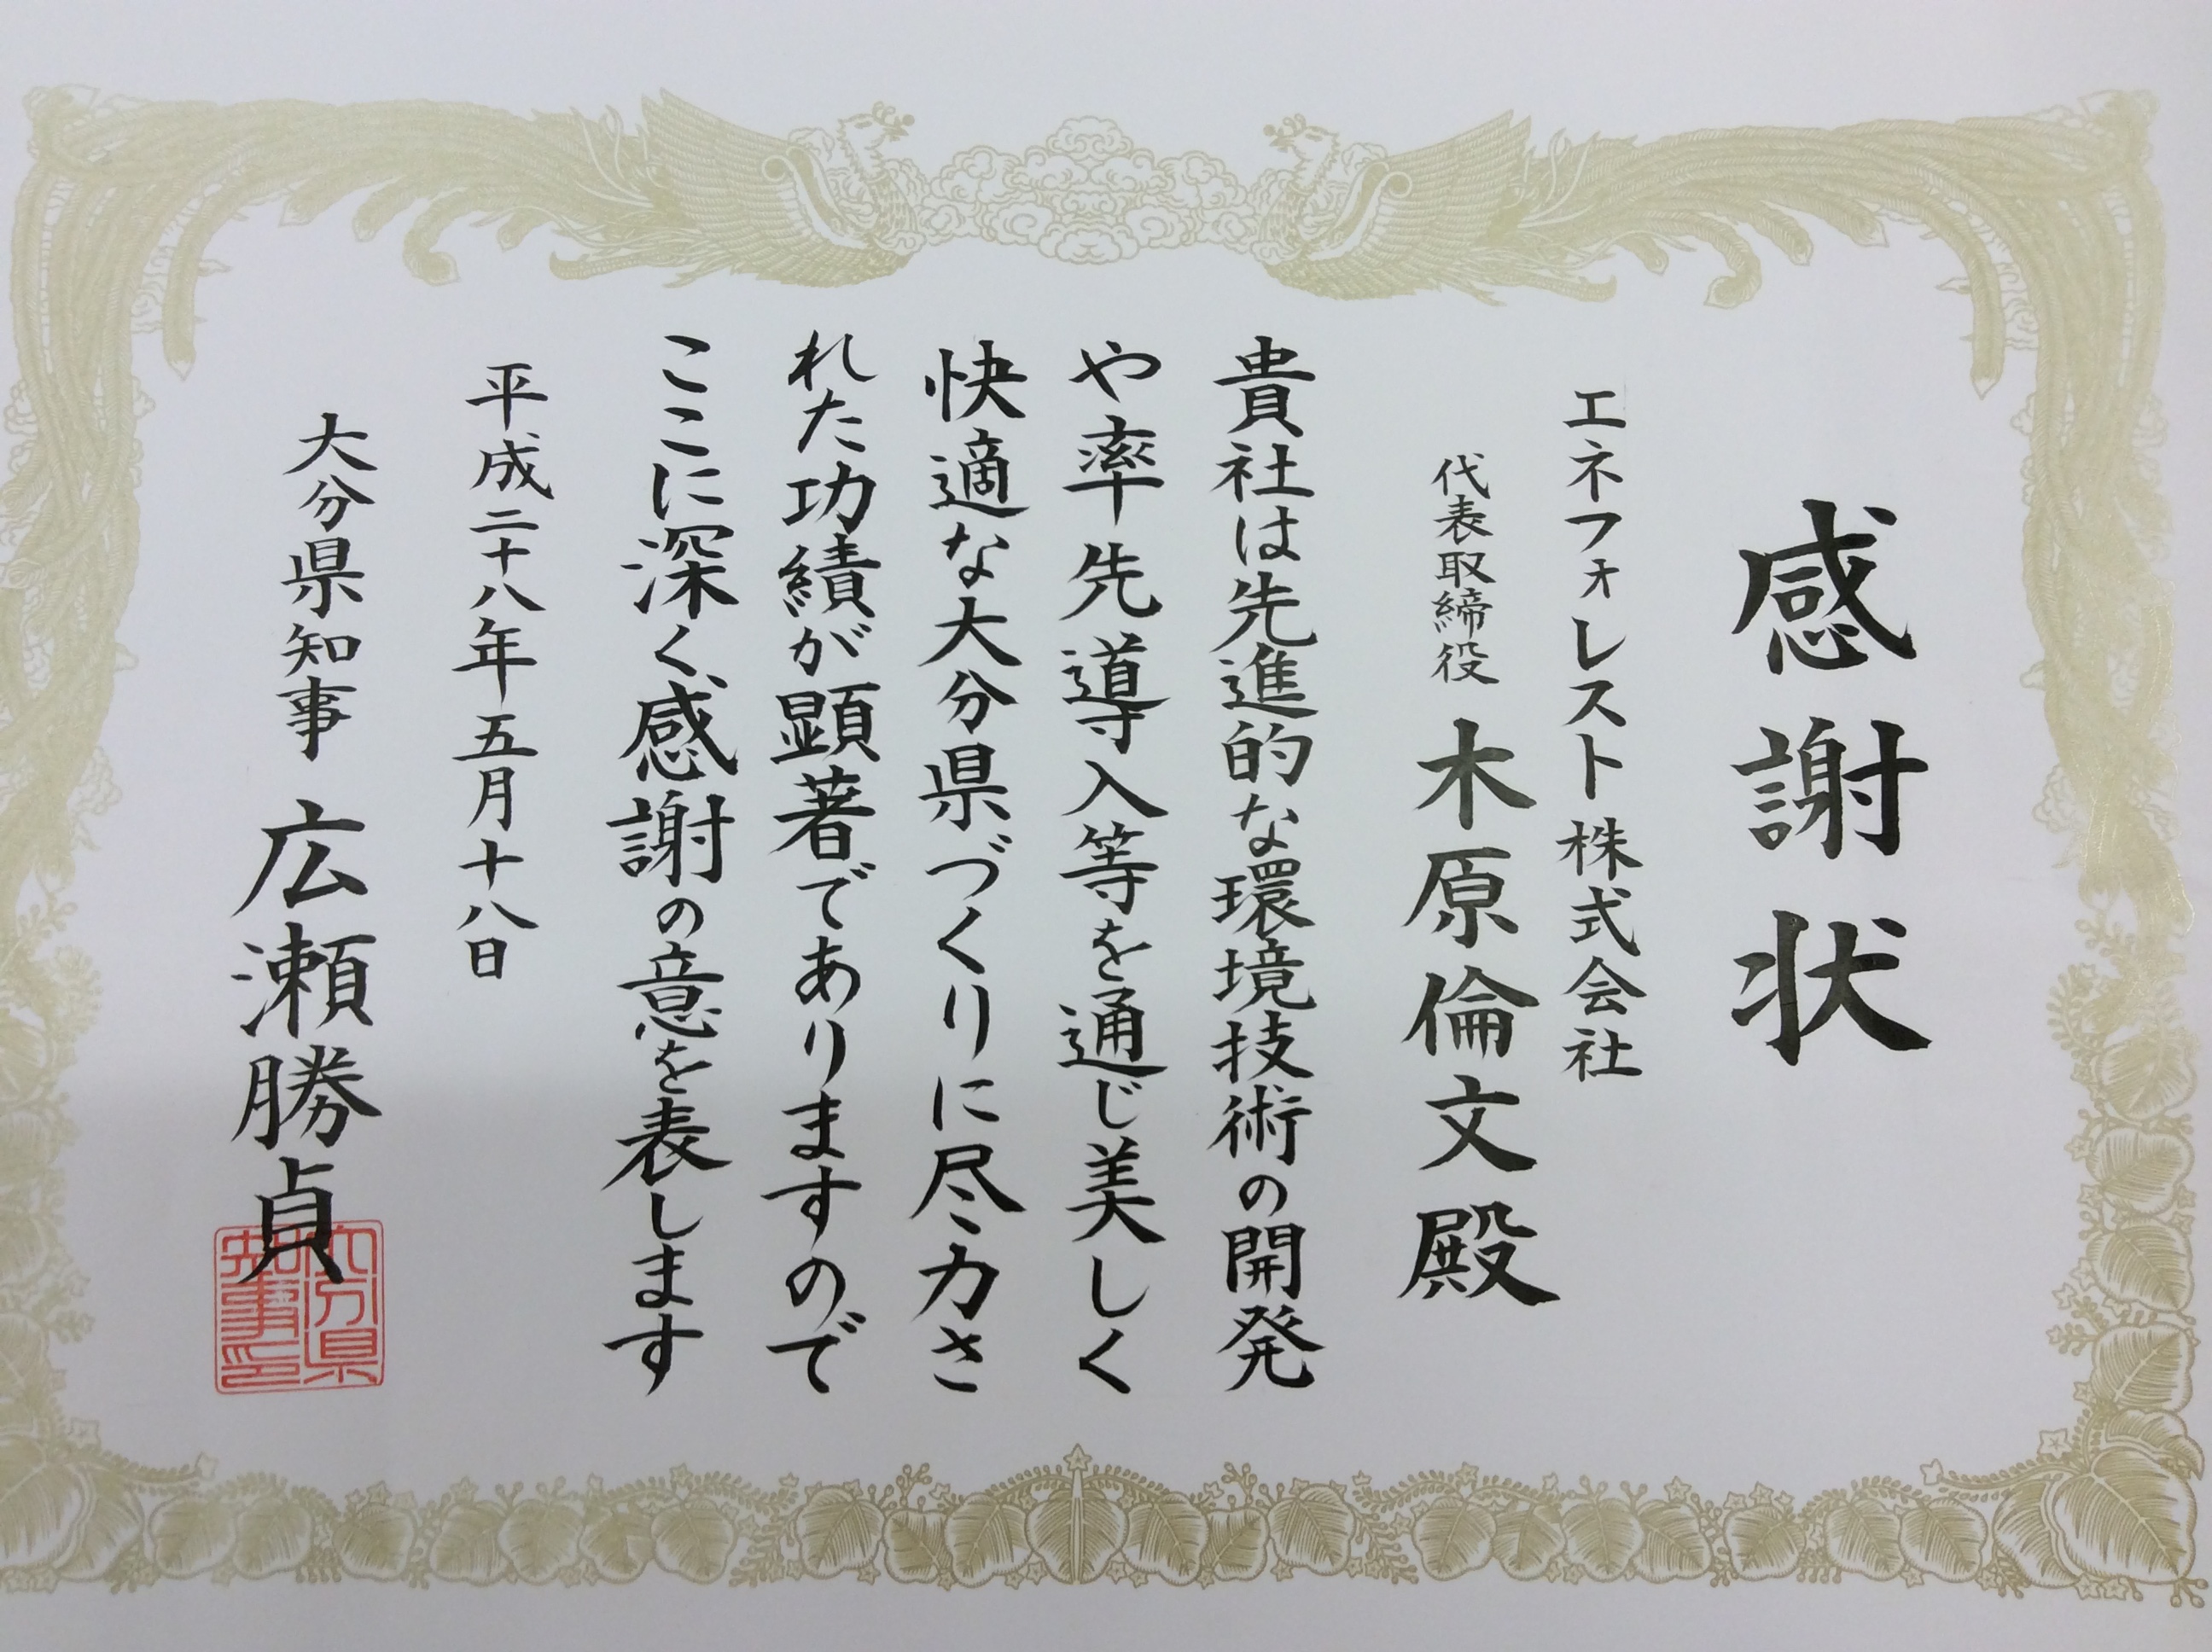 感謝状
エネフォレスト株式会社
代表取締役 木原倫文殿
貴社は先進的な環境技術の開発
や率先導入等を通じ美しく
快適な大分県づくりに尽力さ
れた功績が顕著でありますので
ここに深く感謝の意を表します
平成二十八年五月十八日
大分県知事 広瀬勝貞
大分県
知事印